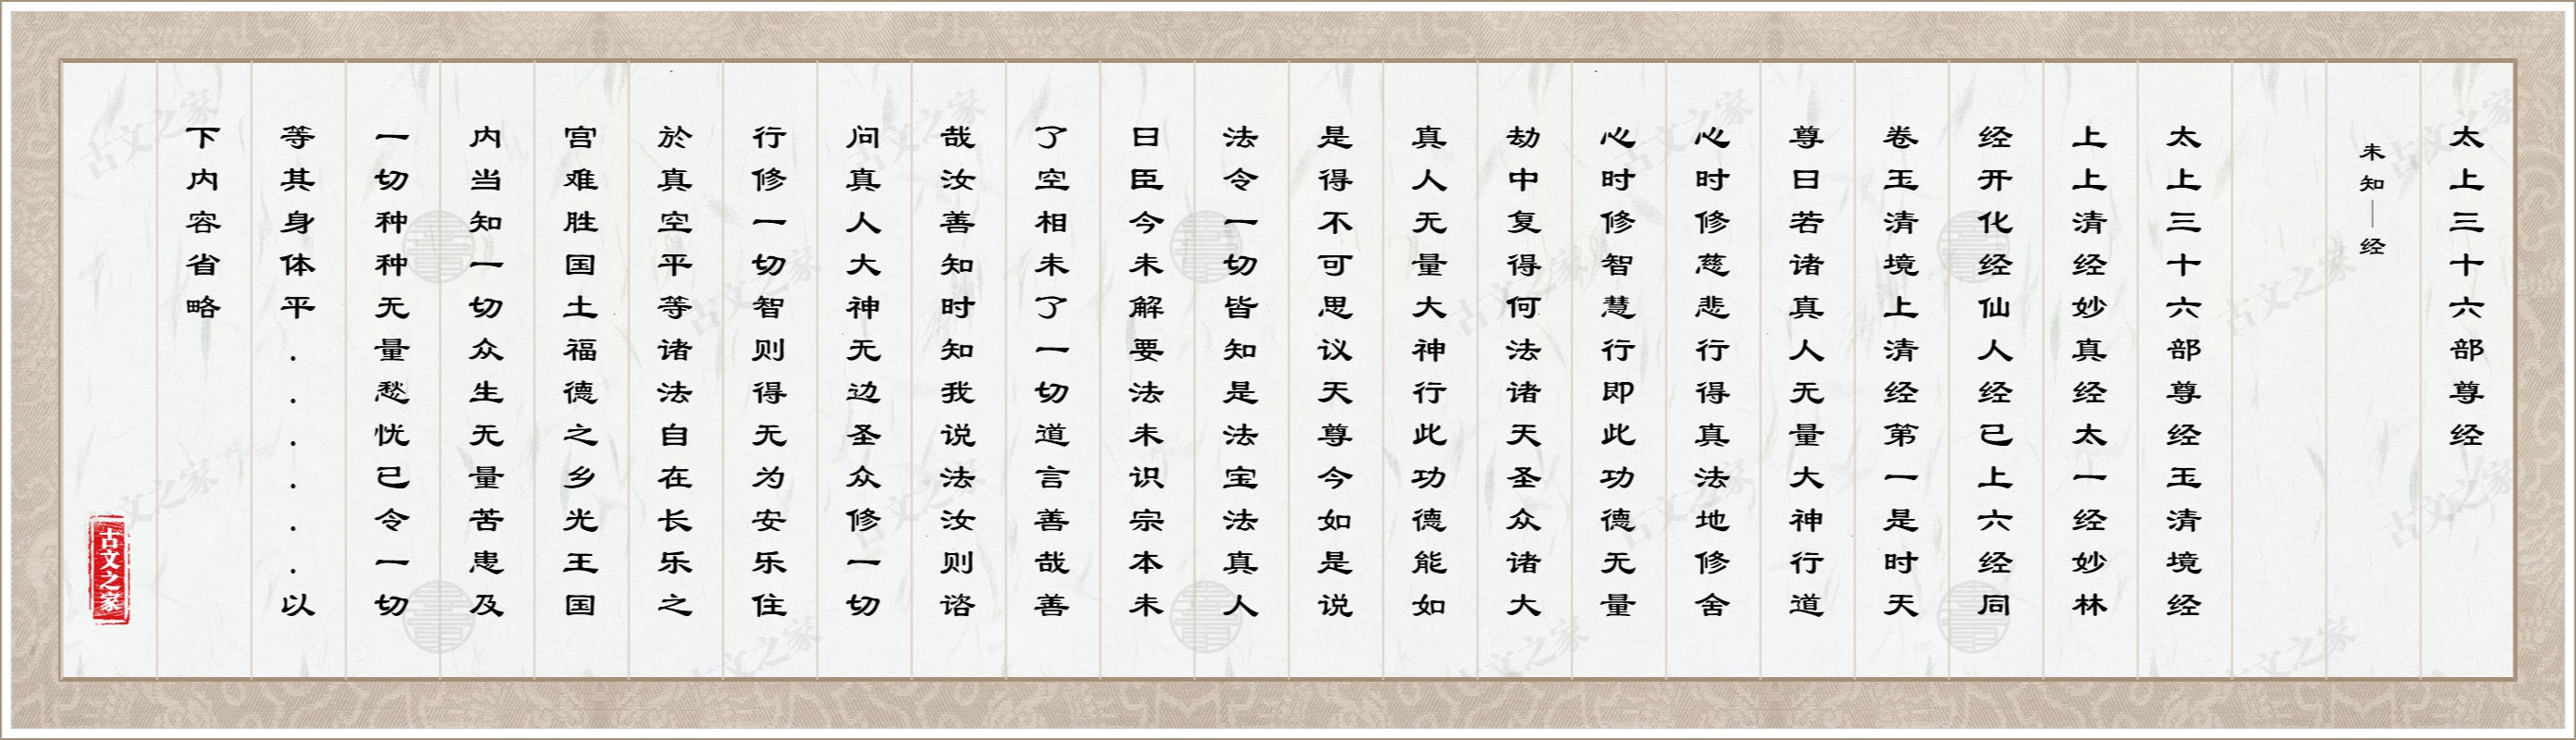 太上三十六部尊经
未知｜经
太上三十六部尊经玉清境经
上上清经妙真经太一经妙林
经开化经仙人经已上六经同
卷玉清境上清经第一是时天
尊曰若诸真人无量大神行道
心时修慈悲行得真法地修舍
心时修智慧行即此功德无量
劫中复得何法诸天圣众诸大
真人无量大神行此功德能如
是得不可思议天尊今如是说
法令一切皆知是法宝法真人
曰臣今未解要法未识宗本未
了空相未了一切道言善哉善
哉汝善知时知我说法汝则谘
问真人大神无边圣众修一切
行修一切智则得无为安乐住
於真空平等诸法自在长乐之
宫难胜国土福德之乡光王国
内当知一切众生无量苦患及
一切种种无量愁忧已令一切
等其身体平......以
下内容省略
古文之家